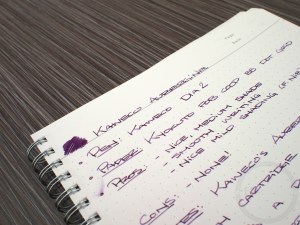 - KAWECO AUBERGINE
- PEN: KAWECO DIA 2
- PAPER: KYOKUTO FOB COOP B5 DOT GRID
- PROS: - NICE, MEDIUM SHADE
- SMOOTH WRITING
- NICE MILD SHADING (IF
CONS: - NONE!
KAWECO'S
CARTRIDGE